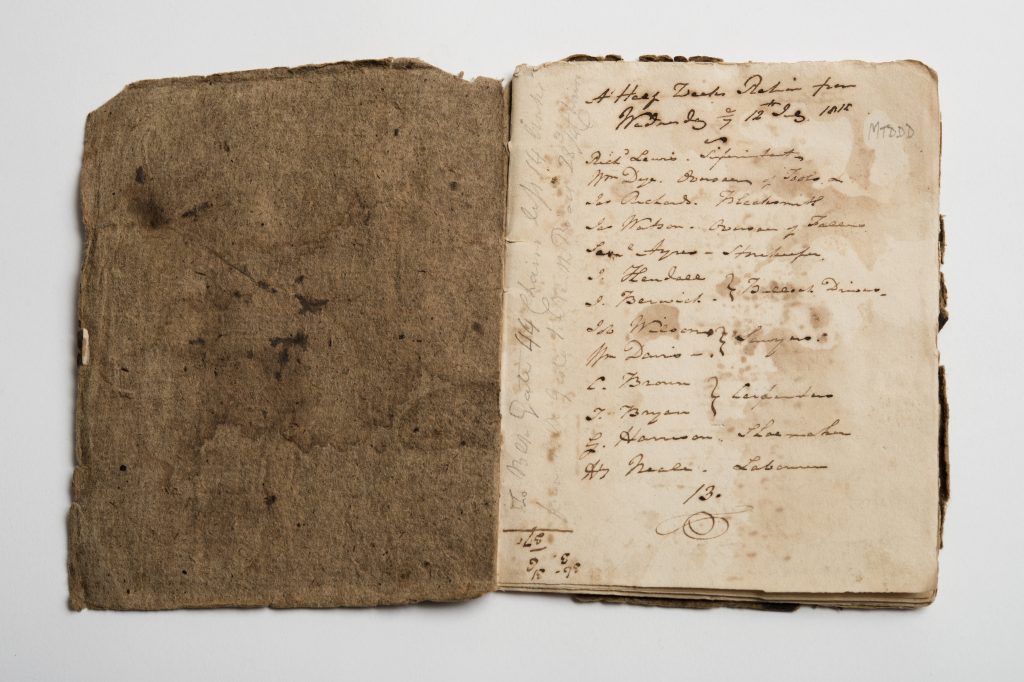 A Half Weeks Ration from
Wednesday 12th July 1815
MTDDD
Richd Lewis. Superintendt
Wm Dye. Overseer of Tools
Jas Orchard. Blacksmith
Jas Watson. Overseer of Fallers
Saml Ayres - Storekeeper
Kendall
J. Berwick. } Bullock Drivers.
Wilson
Wm Davis - } Sawyers.
C. Brown
T. Bryan } Carpenters
Harrison. Shoemaker
Hy Neale. Labourer
13.
To Bap Gate 44 Chains left 14